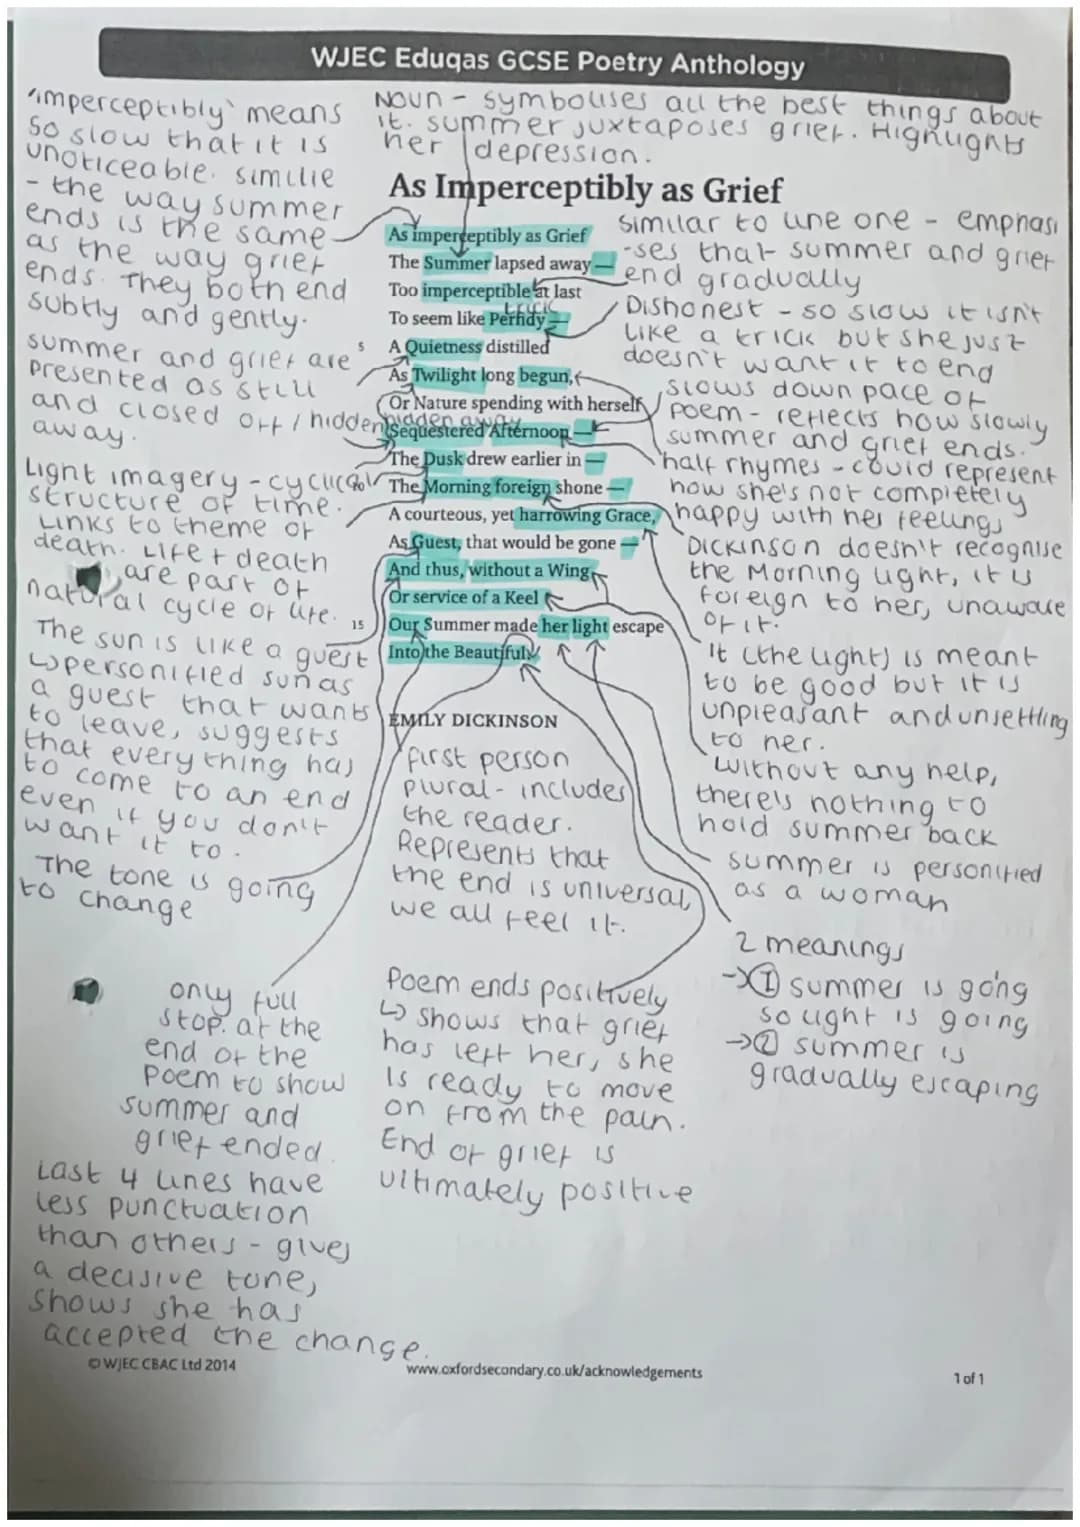 WJEC Eduqas GCSE Poetry Anthology
'imperceptibly' means
so slow that it is
unoticeable. similie
- the way summer
ends is the same
as the way grief
ends. They both end
subtly and gently.
Noun - symbolises all the best things about
it. summer juxtaposes grief. Highlights
her depression.
As Imperceptibly as Grief
As imperceptibly as Grief
The Summer lapsed away —
Too imperceptible at last
trick
To seem like Perfidy —
5
A Quietness distilled
As Twilight long begun,
Or Nature spending with herself
hidden away
Sequestered Afternoon —
The Dusk drew earlier in —
10
The Morning foreign shone —
A courteous, yet harrowing Grace,
As Guest, that would be gone —
And thus, without a Wing
Or service of a Keel
15
Our Summer made her light escape
Into the Beautiful.
EMILY DICKINSON
similar to line one - emphasi
-ses that summer and grief
end gradually
Dishonest - so slow it isn't
like a trick but she just
doesn't want it to end
slows down pace of
poem - reflects how slowly
summer and grief ends.
half rhymes - could represent
how she's not completely
happy with her feelings
Dickinson doesn't recognise
the Morning light, it is
foreign to her, unaware
of it.
It (the light) is meant
to be good but it is
unpleasant and unsettling
to her.
without any help,
there's nothing to
hold summer back
summer is personified
as a woman
2 meanings
→① summer is going
so light is going
→② summer is
gradually escaping
summer and grief are
presented as still
and closed off / hidden
away.
Light imagery - cyclical
structure of time.
Links to theme of
death. Life + death
are part of
natural cycle of life.
The sun is like a guest
↳personified sun as
a guest that wants
to leave, suggests
that everything has
to come to an end
even if you don't
want it to.
The tone is going
to change
first person
plural - includes
the reader.
Represents that
the end is universal,
we all feel it.
only full
stop. at the
end of the
poem to show
summer and
grief ended.
Last 4 lines have
less punctuation
than others - gives
a decisive tone,
shows she has
accepted the change.
Poem ends positively
↳ shows that grief
has left her, she
is ready to move
on from the pain.
End of grief is
ultimately positive
© WJEC CBAC Ltd 2014
www.oxfordsecondary.co.uk/acknowledgements
1 of 1